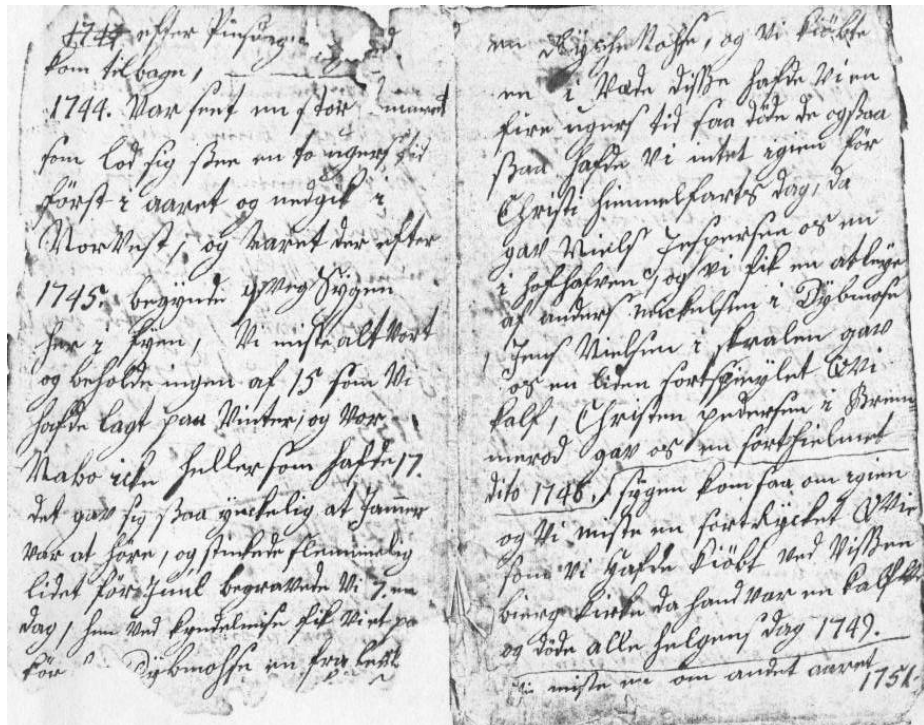 1747 efter Pinsen
kom tilbage,
1744. Var seet en stor
som lod sig see en to ugers tid
först i aaret og nedgik i
Nor Vest, og Varet der efter
1745. begynde qveg Sÿgen
her i Fyen, Vi miste alt Vort
og beholde ingen af 15 som Vi
hafde lagt paa Vinter, og Vor
Nabo icke heller som hafde 17.
det gav sig ßaa ÿnckelig at Jammer
var at höre, og stinckede
lidet för Juul begravede Vi 7. en
dag, hen ved Kyndelmise fik Vi et par
kör Dÿbmohse en fra
en Rohse, og vi kiöbte
en i Vede diße hafde Vi en
fire ugers tid saa döde de ogsaa
ßaa hafde Vi intet igien för
Christi himmelfarts dag, da
gav Niels Jespersen os en
i hofhafven, og vi fik en at leÿe
af anders Mickelsen i Dÿbmose
, Jens Nielsen i skralen gav
os en liden sort Qvi
kalf, Christen pedersen i Brem
merod gav os en sorthielmet
dito 1746, sÿgen kom saa om igien
og Vi miste en sort Qvie
som Vi Hafde kiöbt ved Vißen
bierg kirke da hand var en kalf
og döde alle helgens dag 1749.
miste en om andet aaret
1751.